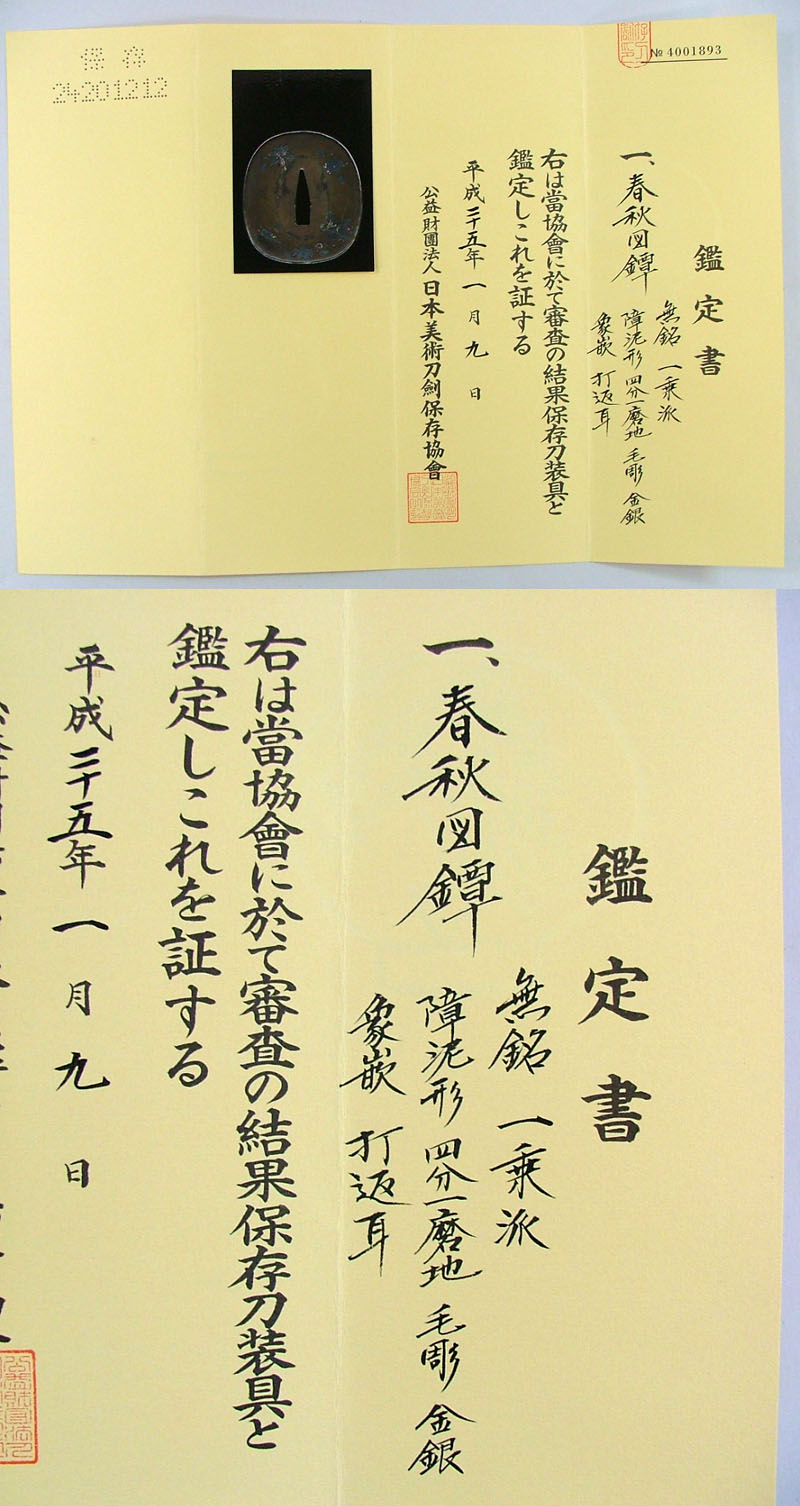 № 4001893
鑑定書
一、春秋図鐔
無銘 一乗派
障泥形 四分一磨地 毛彫 金銀
象嵌 打返耳
右は當協會に於て審査の結果保存刀装具と
鑑定しこれを証する
平成二十五年一月九日
公益財團法人日本美術刀劍保存協會
保存
24201212
鑑定書
一、春秋図鐔
無銘 一乗派
障泥形 四分一磨地 毛彫 金銀
象嵌 打返耳
右は當協會に於て審査の結果保存刀装具と
鑑定しこれを証する
平成二十五年一月九日